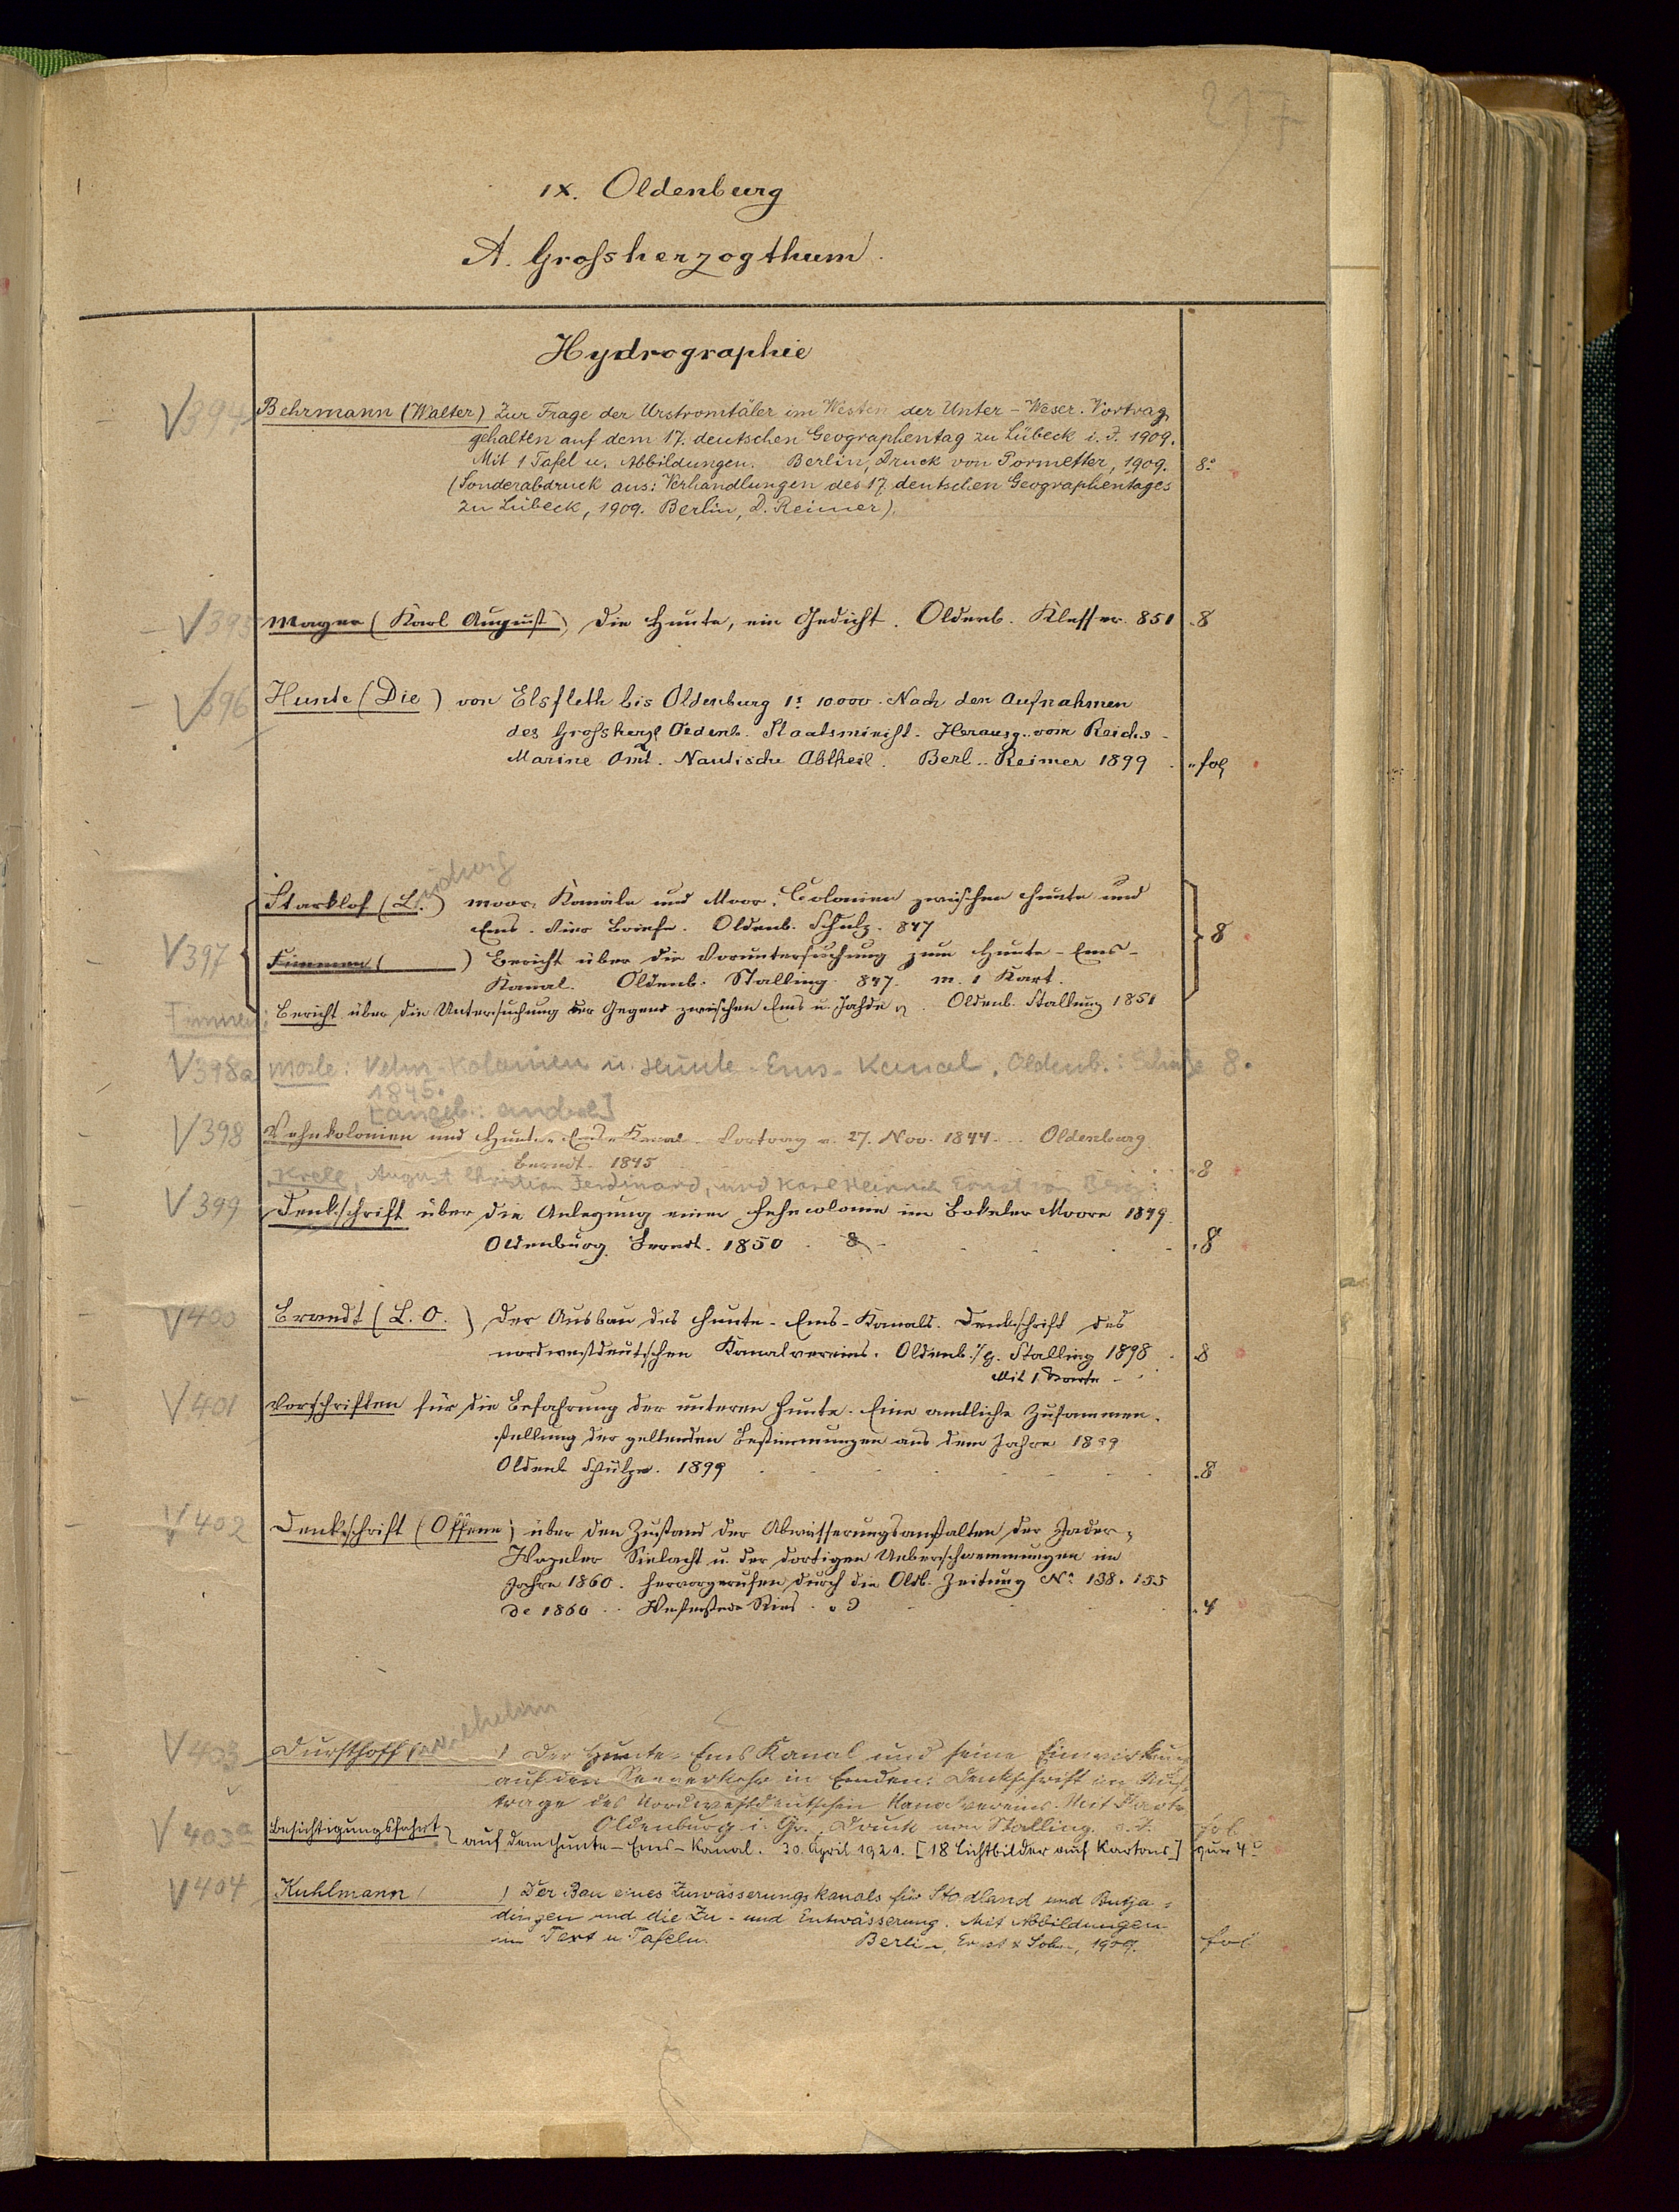 217
IX. Oldenburg
A. Grossherzogthum.
Hydrographie
V394 Behrmann (Walter) Zur Frage der Urstromtäler im Westen der Unter-Weser. Vortrag,
gehalten auf dem 17. deutschen Geographentag zu Lübeck i. J. 1909.
Mit 1 Tafel u. Abbildungen. Berlin, Druck von Pormetter, 1909. 8°
(Sonderabdruck aus: Verhandlungen des 17. deutschen Geographentages
zu Lübeck, 1909. Berlin, D. Reimer).
V395 Mayer (Karl August) Die Hunte, ein Gedicht. Oldenb. 851 8
V396 Hunte (Die) von Elsfleth bis Oldenburg 1: 10000. Nach den Aufnahmen
des Grossherzl Oldenb. Staatsminist. Herausg. vom Reichs-
Marine Amt. Nautische Abtheil. Berl. Reimer 1899 fol
Ludwig
V397 Starklof (L.) Moor-Kanäle und Moor-Colonien zwischen Hunte und
Ems. Vier Briefe. Oldenb. Schulz. 847 8
Finnmen ( ) Bericht über die Voruntersuchung zum Hunte-Ems-
Kanal. Oldenb. Stalling 847. m. 1 Kart.
Bericht über die Untersuchung der Gegend zwischen Ems u. Jahde Oldenb. Stalling 1851
V398a Mosle: Vehn-Kolonien u. Hunte-Ems-Kanal. Oldenb.: Schulze 8.
1845.
V398 Vehnkolonien und Hunte-Ems-Kanal. Vortrag v. 27. Nov. 1844. Oldenburg
Berndt. 1845 8
Krell, August Christian Ferdinand, und Karl Heinrich Ernst von Berg:
V399 Denkschrift über die Anlegung einer Fehncolonie im Bokeler Moore 1849.
Oldenburg Berndt. 1850 8 8
V400 Brandt (L. O.) Der Ausbau des Hunte-Ems-Kanals. Denkschrift des
nordwestdeutschen Kanalvereins. Oldenb. i/g. Stalling 1898 8
Mit 1 Karte
V401 Vorschriften für die Befahrung der unteren Hunte. Eine amtliche Zusammen-
stellung der geltenden Bestimmungen aus dem Jahre 1899
Oldenb Schulze. 1899 8
V402 Denkschrift (Offene) über den Zustand der Abwässerungsanstalten der Jader-
Wapeler Sielacht u. der dortigen Ueberschwemmungen im
Jahre 1860. Hervorgerufen durch die Oldb. Zeitung No. 138. 155
de 1860 Westerstede Ries 4
Wilhelm
V403 Dursthoff ( ) Der Hunte-Ems Kanal und seine Einwirkung
auf den Seeverkehr in Emden. Denkschrift im Auf-
trage des Nordwestdeutschen Kanalvereins. Mit Karte
Oldenburg i. Gr., Druck von Stalling. o. J. fol
V403a Besichtigungsfahrt auf dem Hunte-Ems-Kanal. 30. April 1921. [18 Lichtbilder auf Kartons] quer 4°
V404 Kuhlmann ( ) Der Bau eines Zuwässerungskanals für Stadland und Butja-
dingen und die Zu- und Entwässerung. Mit Abbildungen
im Text u. Tafeln. Berlin, Ernst & Sohn, 1909. fol